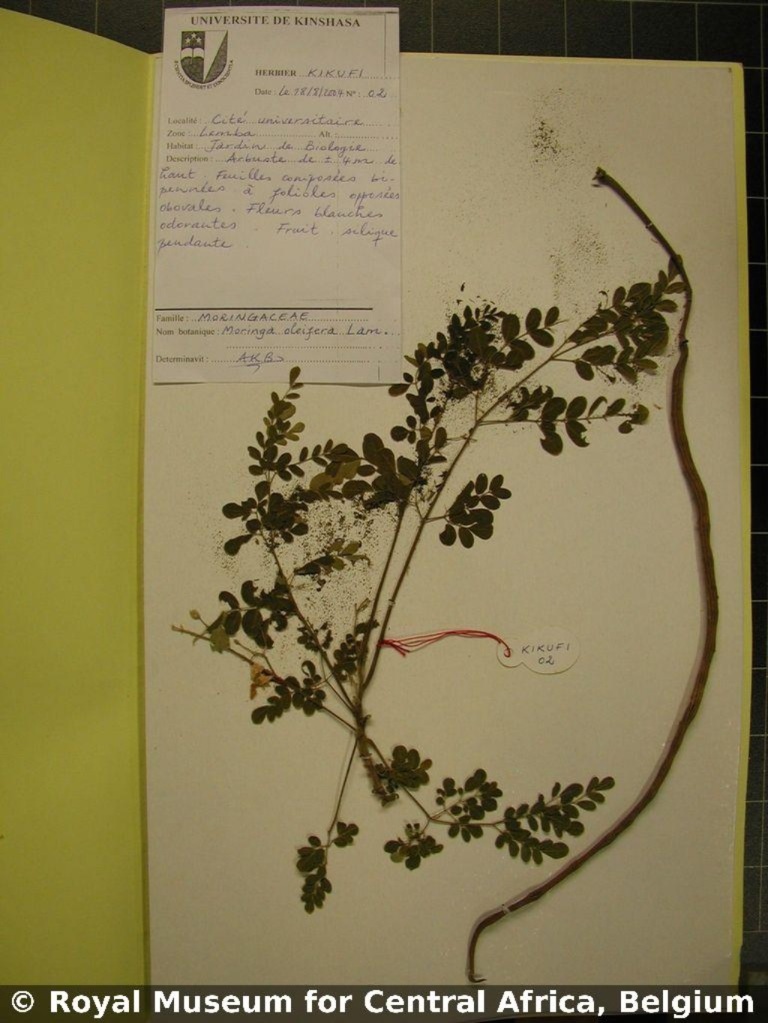 UNIVERSITE DE KINSHASA
HERBIER KIKUFI
Date : Le 18/8/2004 N° : 02
Localité : Cité universitaire
Zone : Lemba Alt :
Habitat : Jardin de Biologie
Description : Arbuste de ± 4m de
haut. Feuilles composées bi-
pennées à folioles opposées
obovales. Fleurs blanches
odorantes. Fruit silique
pendante
Famille : MORINGACEAE
Nom botanique : Moringa oleifera Lam.
Determinavit : AKB
KIKUFI
02
© Royal Museum for Central Africa, Belgium